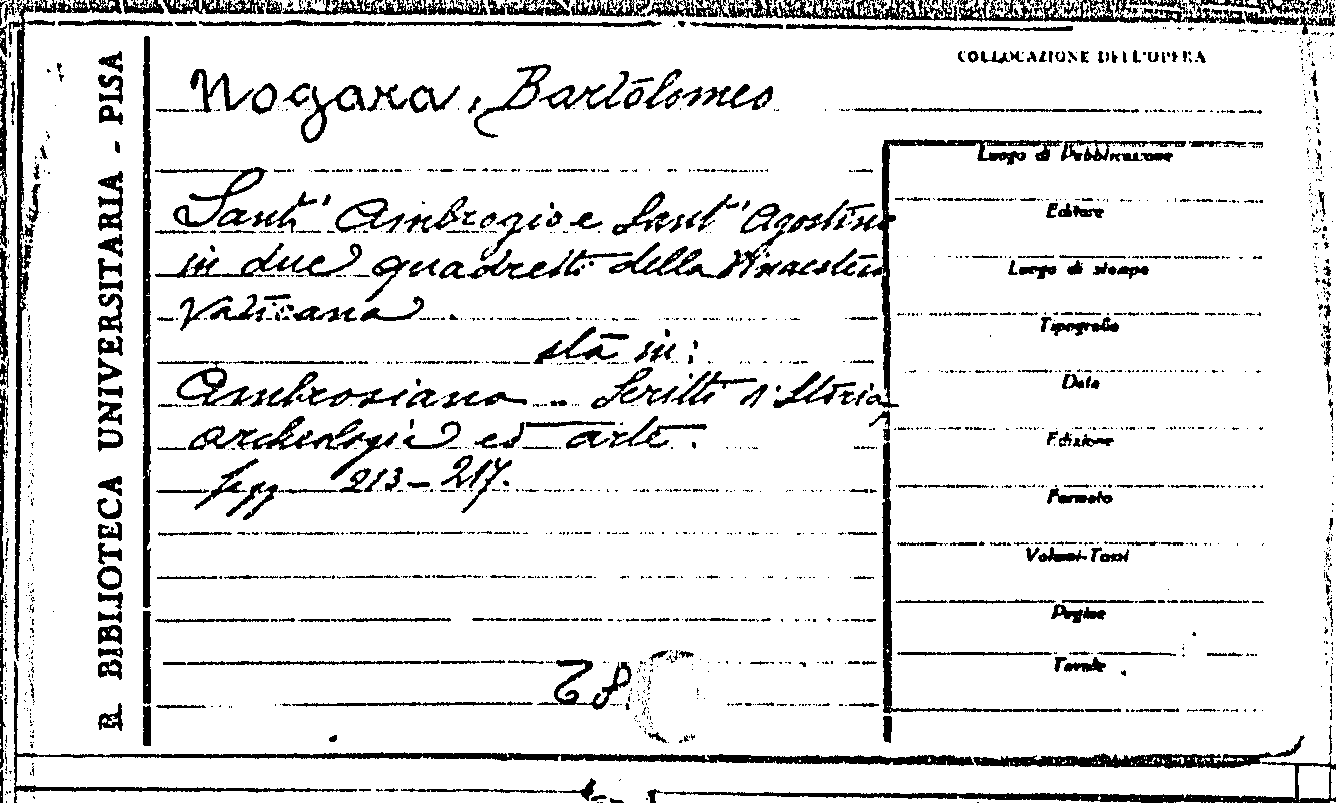 R. BIBLIOTECA UNIVERSITARIA - PISA
COLLOCAZIONE DELL'OPERA
Nogara, Bartolomeo
Sant' Ambrogio e Sant' Agostino
in due quadretti della Pinacoteca
Vaticana.
sta in:
Ambrosiana - Scritti di Storia,
archeologia ed arte.
pagg 213-217.
68
Luogo di Pubblicazione
Editore
Luogo di stampa
Tipografia
Data
Edizione
Formato
Volumi-Tomi
Pagine
Tavole